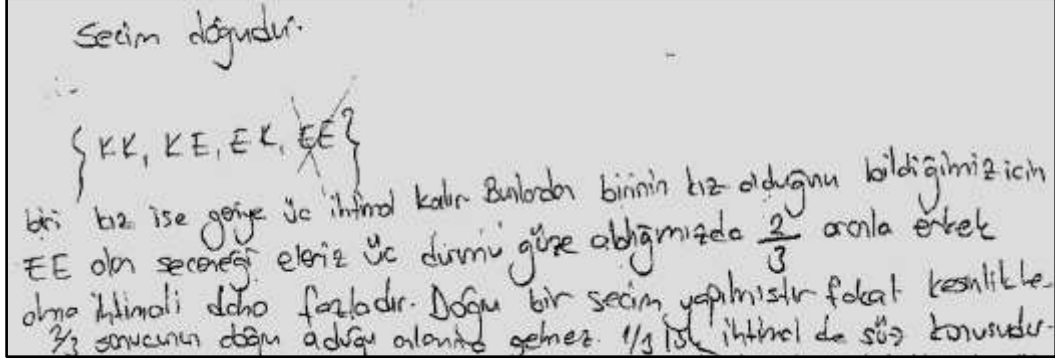 Secim doğrudur.
{KK, KE, EK, EE}
biri kız ise geriye üc ihtimal kalır Bunlardan birinin kız olduğunu bildiğimiz icin
EE olan seceneği eleriz üc durumu göze aldığımızda 2/3 oranla erkek
olma ihtimali daha fazladır. Doğru bir secim yapılmıstır fakat kesinlikle
2/3 sonucunun doğru olduğu anlamına gelmez. 1/3 lük ihtimal de söz konusudur.